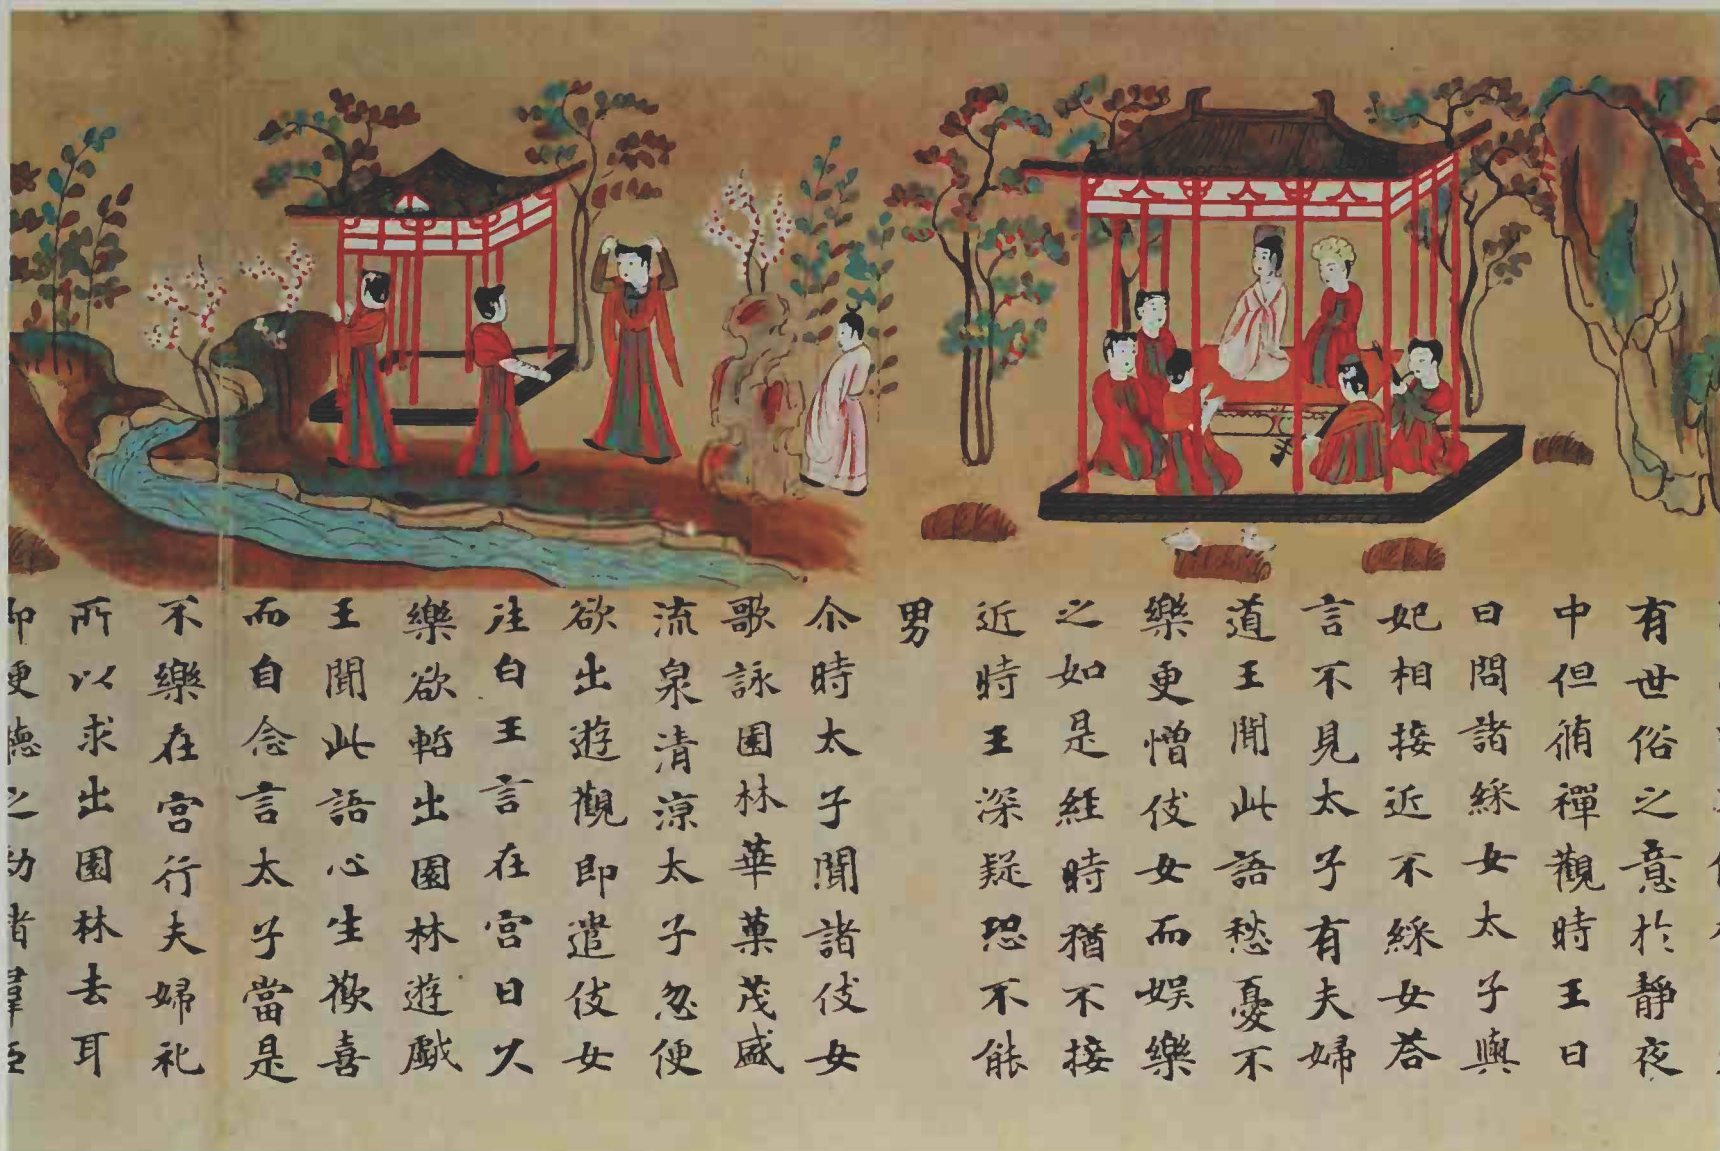 有世俗之意於靜夜
中但脩禪觀時王日
日問諸綵女太子與
妃相接近不綵女荅
言不見太子有夫婦
道王聞此語愁憂不
樂更增伎女而娱樂
之如是經時猶不接
近時王深疑恐不能
男
尒時太子聞諸伎女
歌詠園林華菓茂盛
流泉清涼太子忽便
欲出遊觀即遣伎女
往白王言在宮日久
樂欲蹔出園林遊戲
王聞此語心生歡喜
而自念言太子當是
不樂在宮行夫婦礼
所以求出園林去耳
即更